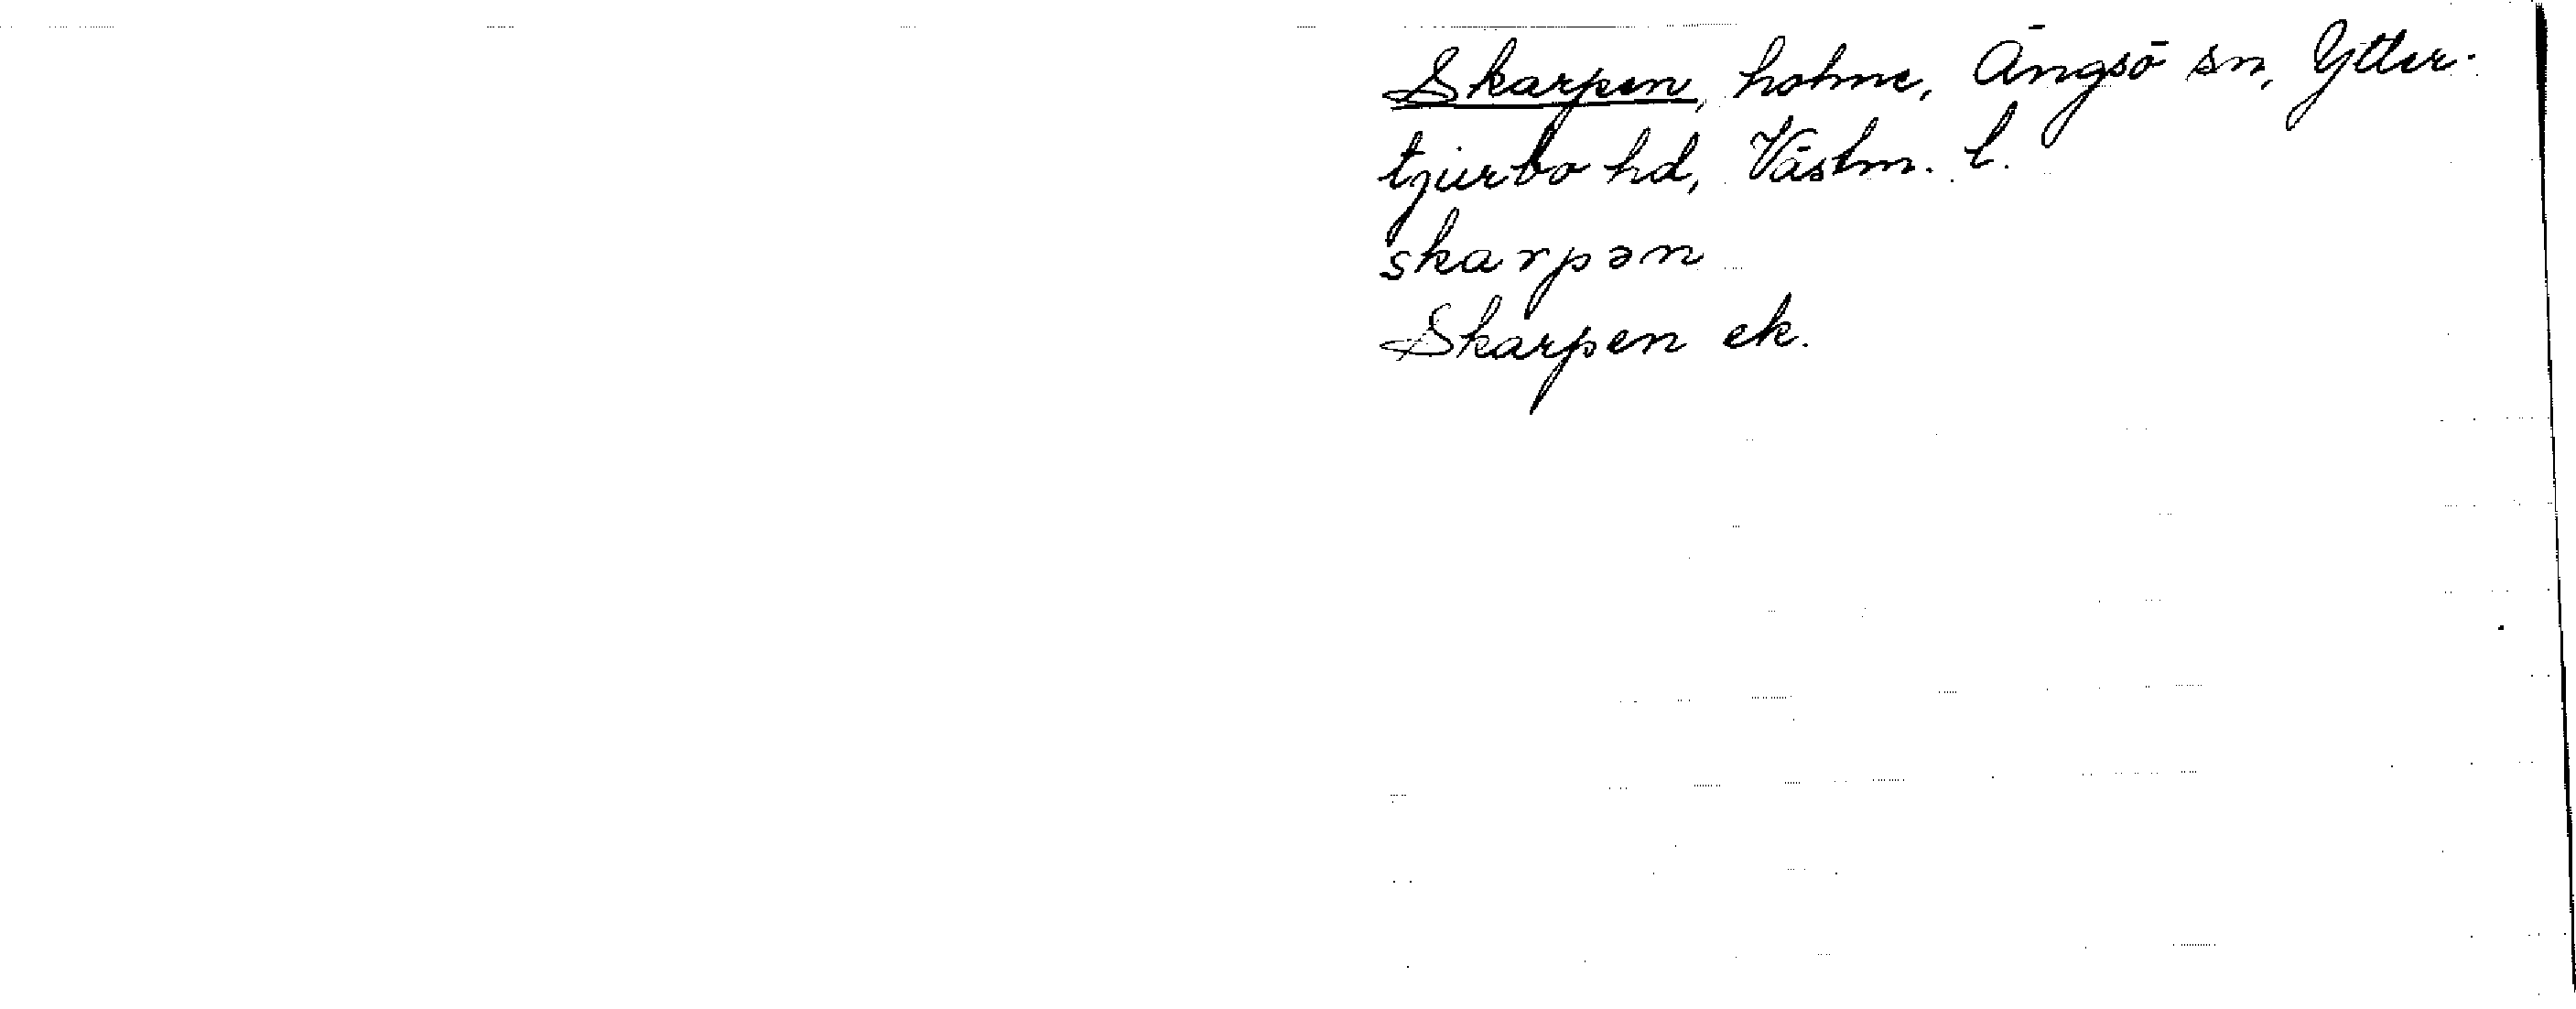 Skarpen, holme, Ängsö sn, Ytter-
tjurbo hd, Västm. l.
skarpən
Skarpen ek.